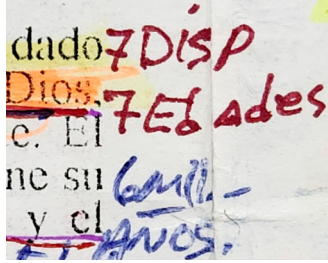 dado 7 DiSP
Dios, 7 Edades
e. El
ne su 6 mil
y el AÑOS.